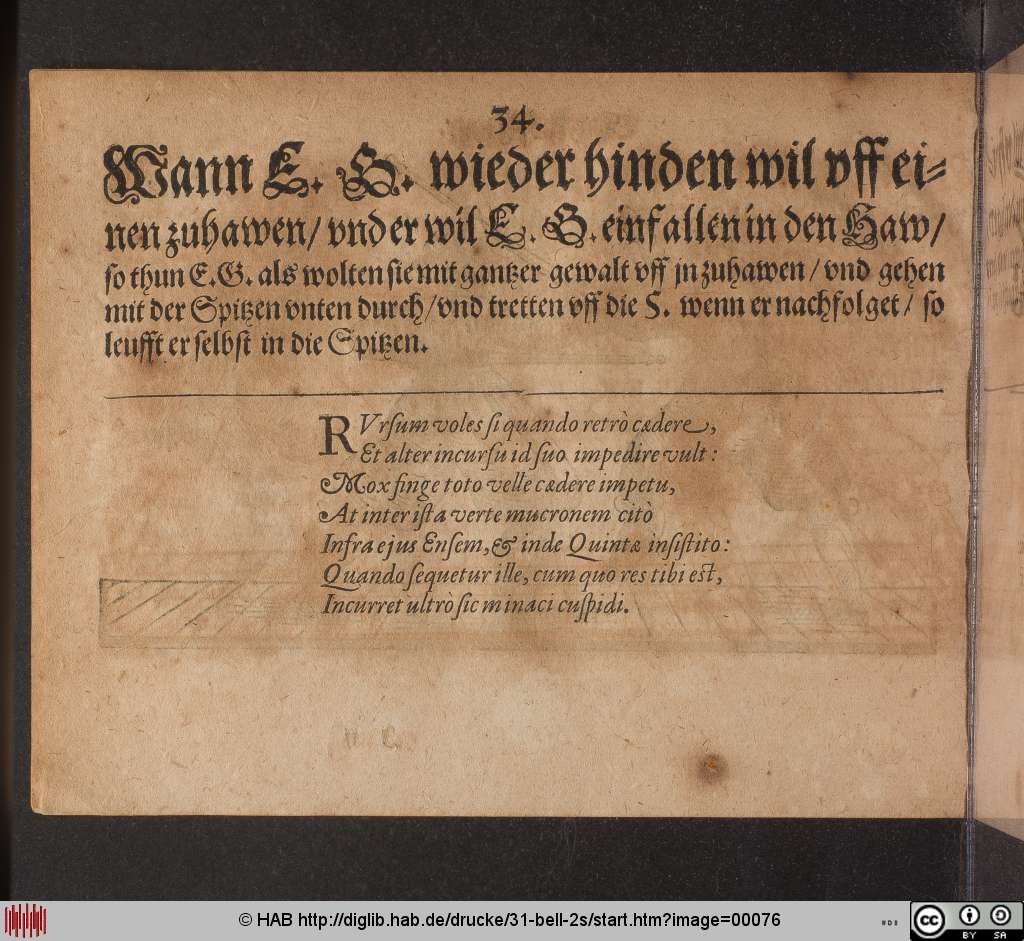 34.
Wann E. G. wieder hinden wil vff ei-
nen zuhawen/ vnd er wil E. G. einfallen in den Haw/
so thun E. G. als wolten sie mit gantzer gewalt vff jn zuhawen/ vnd gehen
mit der Spitzen vnten durch/ vnd tretten vff die 5. wenn er nachfolget/ so
leufft er selbst in die Spitzen.
RVrsum voles si quando retrò cædere,
Et alter incursu id suo impedire vult:
Mox finge toto velle cædere impetu,
At inter ista verte mucronem citò
Infra ejus Ensem, & inde Quintæ insistito:
Quando sequetur ille, cum quo res tibi est,
Incurret ultrò sic minaci cuspidi.
© HAB http://diglib.hab.de/drucke/31-bell-2s/start.htm?image=00076
cc BY SA